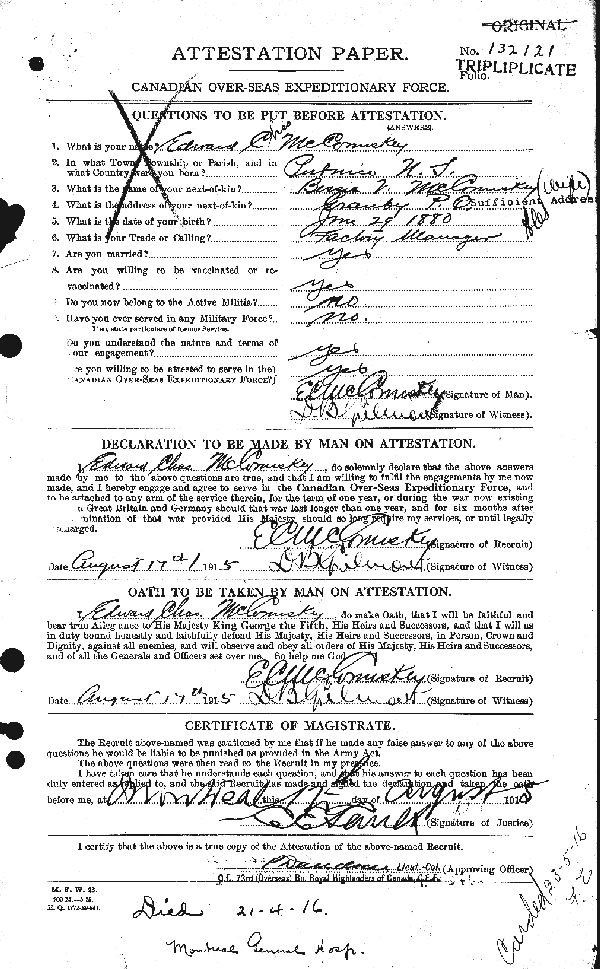 ORIGINAL
ATTESTATION PAPER.
No. 132121
TRIPLIPLICATE
Folio.
CANADIAN OVER-SEAS EXPEDITIONARY FORCE.
QUESTIONS TO BE PUT BEFORE ATTESTATION.
(ANSWERS).
1. What is your name? Edward Chas McComiskey
2. In what Town, Township or Parish, and in
what Country were you born? N. J.
3. What is the name of your next-of-kin? McComiskey (wife)
4. What is the address of your next-of-kin? Granby P.Q. Sufficient Address
Yes
5. What is the date of your birth? June 29 1880
6. What is your Trade or Calling? Factory Manager
7. Are you married? Yes
8. Are you willing to be vaccinated or re-
vaccinated? Yes
Do you now belong to the Active Militia? no
Have you ever served in any Military Force? no.
If so, state particulars of former Service.
Do you understand the nature and terms of
your engagement? yes
Are you willing to be attested to serve in the yes
CANADIAN OVER-SEAS EXPEDITIONARY FORCE?
EC McComiskey (Signature of Man).
D B Gilmour (Signature of Witness).
DECLARATION TO BE MADE BY MAN ON ATTESTATION.
I, Edward Chas. McComiskey, do solemnly declare that the above answers
made by me to the above questions are true, and that I am willing to fulfil the engagements by me now
made, and I hereby engage and agree to serve in the Canadian Over-Seas Expeditionary Force, and
to be attached to any arm of the service therein, for the term of one year, or during the war now existing
Great Britain and Germany should that war last longer than one year, and for six months after
mination of that war provided His Majesty should so long require my services, or until legally
charged.
EC McComiskey (Signature of Recruit)
Date August 17th 1915 D B Gilmour (Signature of Witness)
OATH TO BE TAKEN BY MAN ON ATTESTATION.
I, Edward Chas. McComisky, do make Oath, that I will be faithful and
bear true Allegiance to His Majesty King George the Fifth, His Heirs and Successors, and that I will as
in duty bound honestly and faithfully defend His Majesty, His Heirs and Successors, in Person, Crown and
Dignity, against all enemies, and will observe and obey all orders of His Majesty, His Heirs and Successors,
and of all the Generals and Officers set over me. So help me God.
EC McComiskey (Signature of Recruit)
Date August 17th 1915 D B Gilmour (Signature of Witness)
CERTIFICATE OF MAGISTRATE.
The Recruit above-named was cautioned by me that if he made any false answer to any of the above
questions he would be liable to be punished as provided in the Army Act.
The above questions were then read to the Recruit in my presence.
I have taken care that he understands each question, and that his answer to each question has been
duly entered as replied to, and the said Recruit has made and signed the declaration and taken the oath
before me, at Montreal this 17 day of August 1915
(Signature of Justice)
I certify that the above is a true copy of the Attestation of the above-named Recruit.
Lieut.-Col. (Approving Officer)
O.C. 73rd (Overseas) Bn. Royal Highlanders of Canada, C.E.F.
M. F. W. 23.
Died 21-4-16.
Montreal General Hosp.
Carded 23-5-16